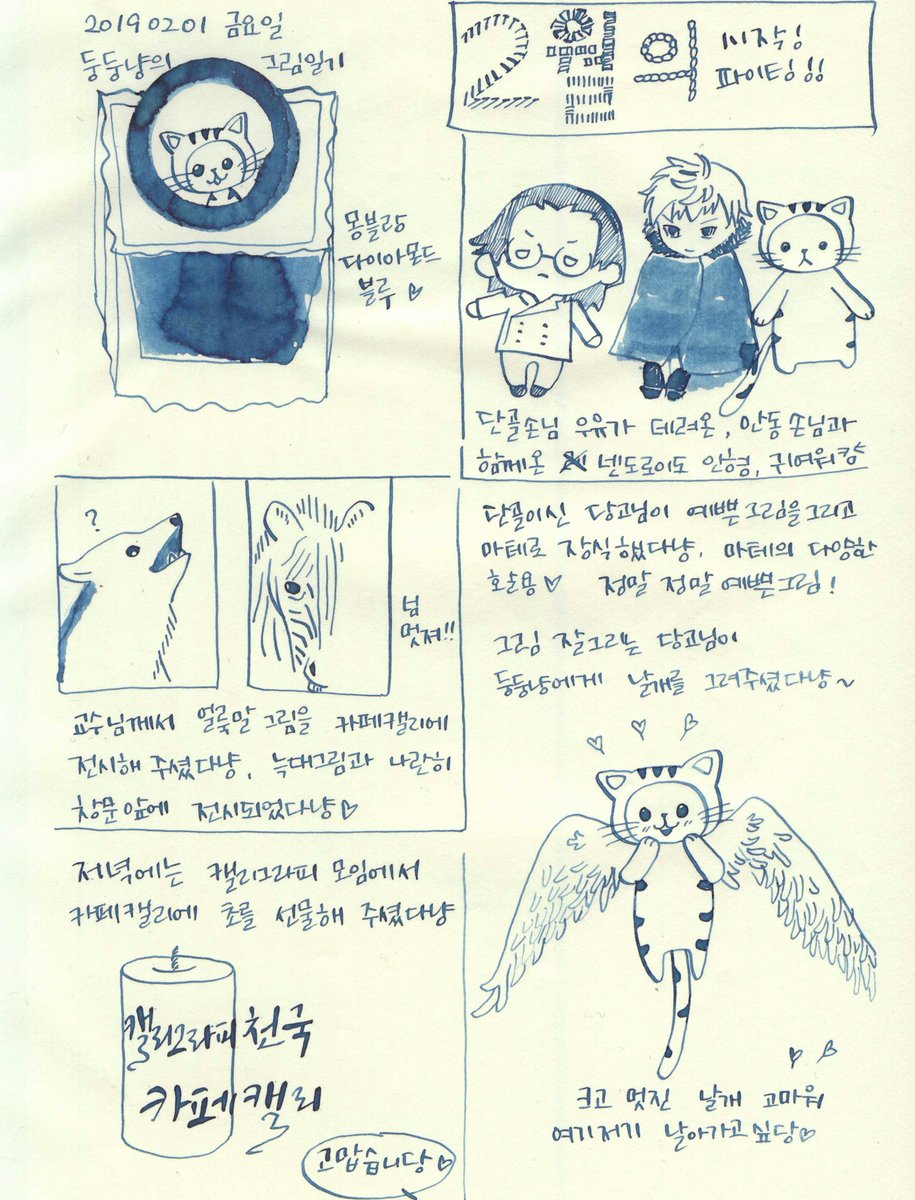 20190201 금요일
둥둥냥의 그림일기
몽블랑
다이아몬드
블루
2월의 시작!
파이팅!!
단골손님 우유가 데려온, 안동손님과
함께온 넨도로이도 인형, 귀여워캬
?
넘
멋져!!
교수님께서 얼룩말그림을 카페캘리에
전시해 주셨다냥, 늑대그림과 나란히
창문앞에 전시되었다냥♡
단골이신 당고님이 예쁜그림을그리고
마테로 장식했다냥. 마테의 다양한
활용♡ 정말 정말 예쁜그림!
그림 잘그리는 당고님이
둥둥냥에게 날개를 그려주셨다냥~
크고 멋진 날개 고마워
여기저기 날아가고싶당♡
저녁에는 캘리그라피 모임에서
카페캘리에 초를 선물해 주셨다냥
캘리그라피천국
카페캘리
고맙습니당♡